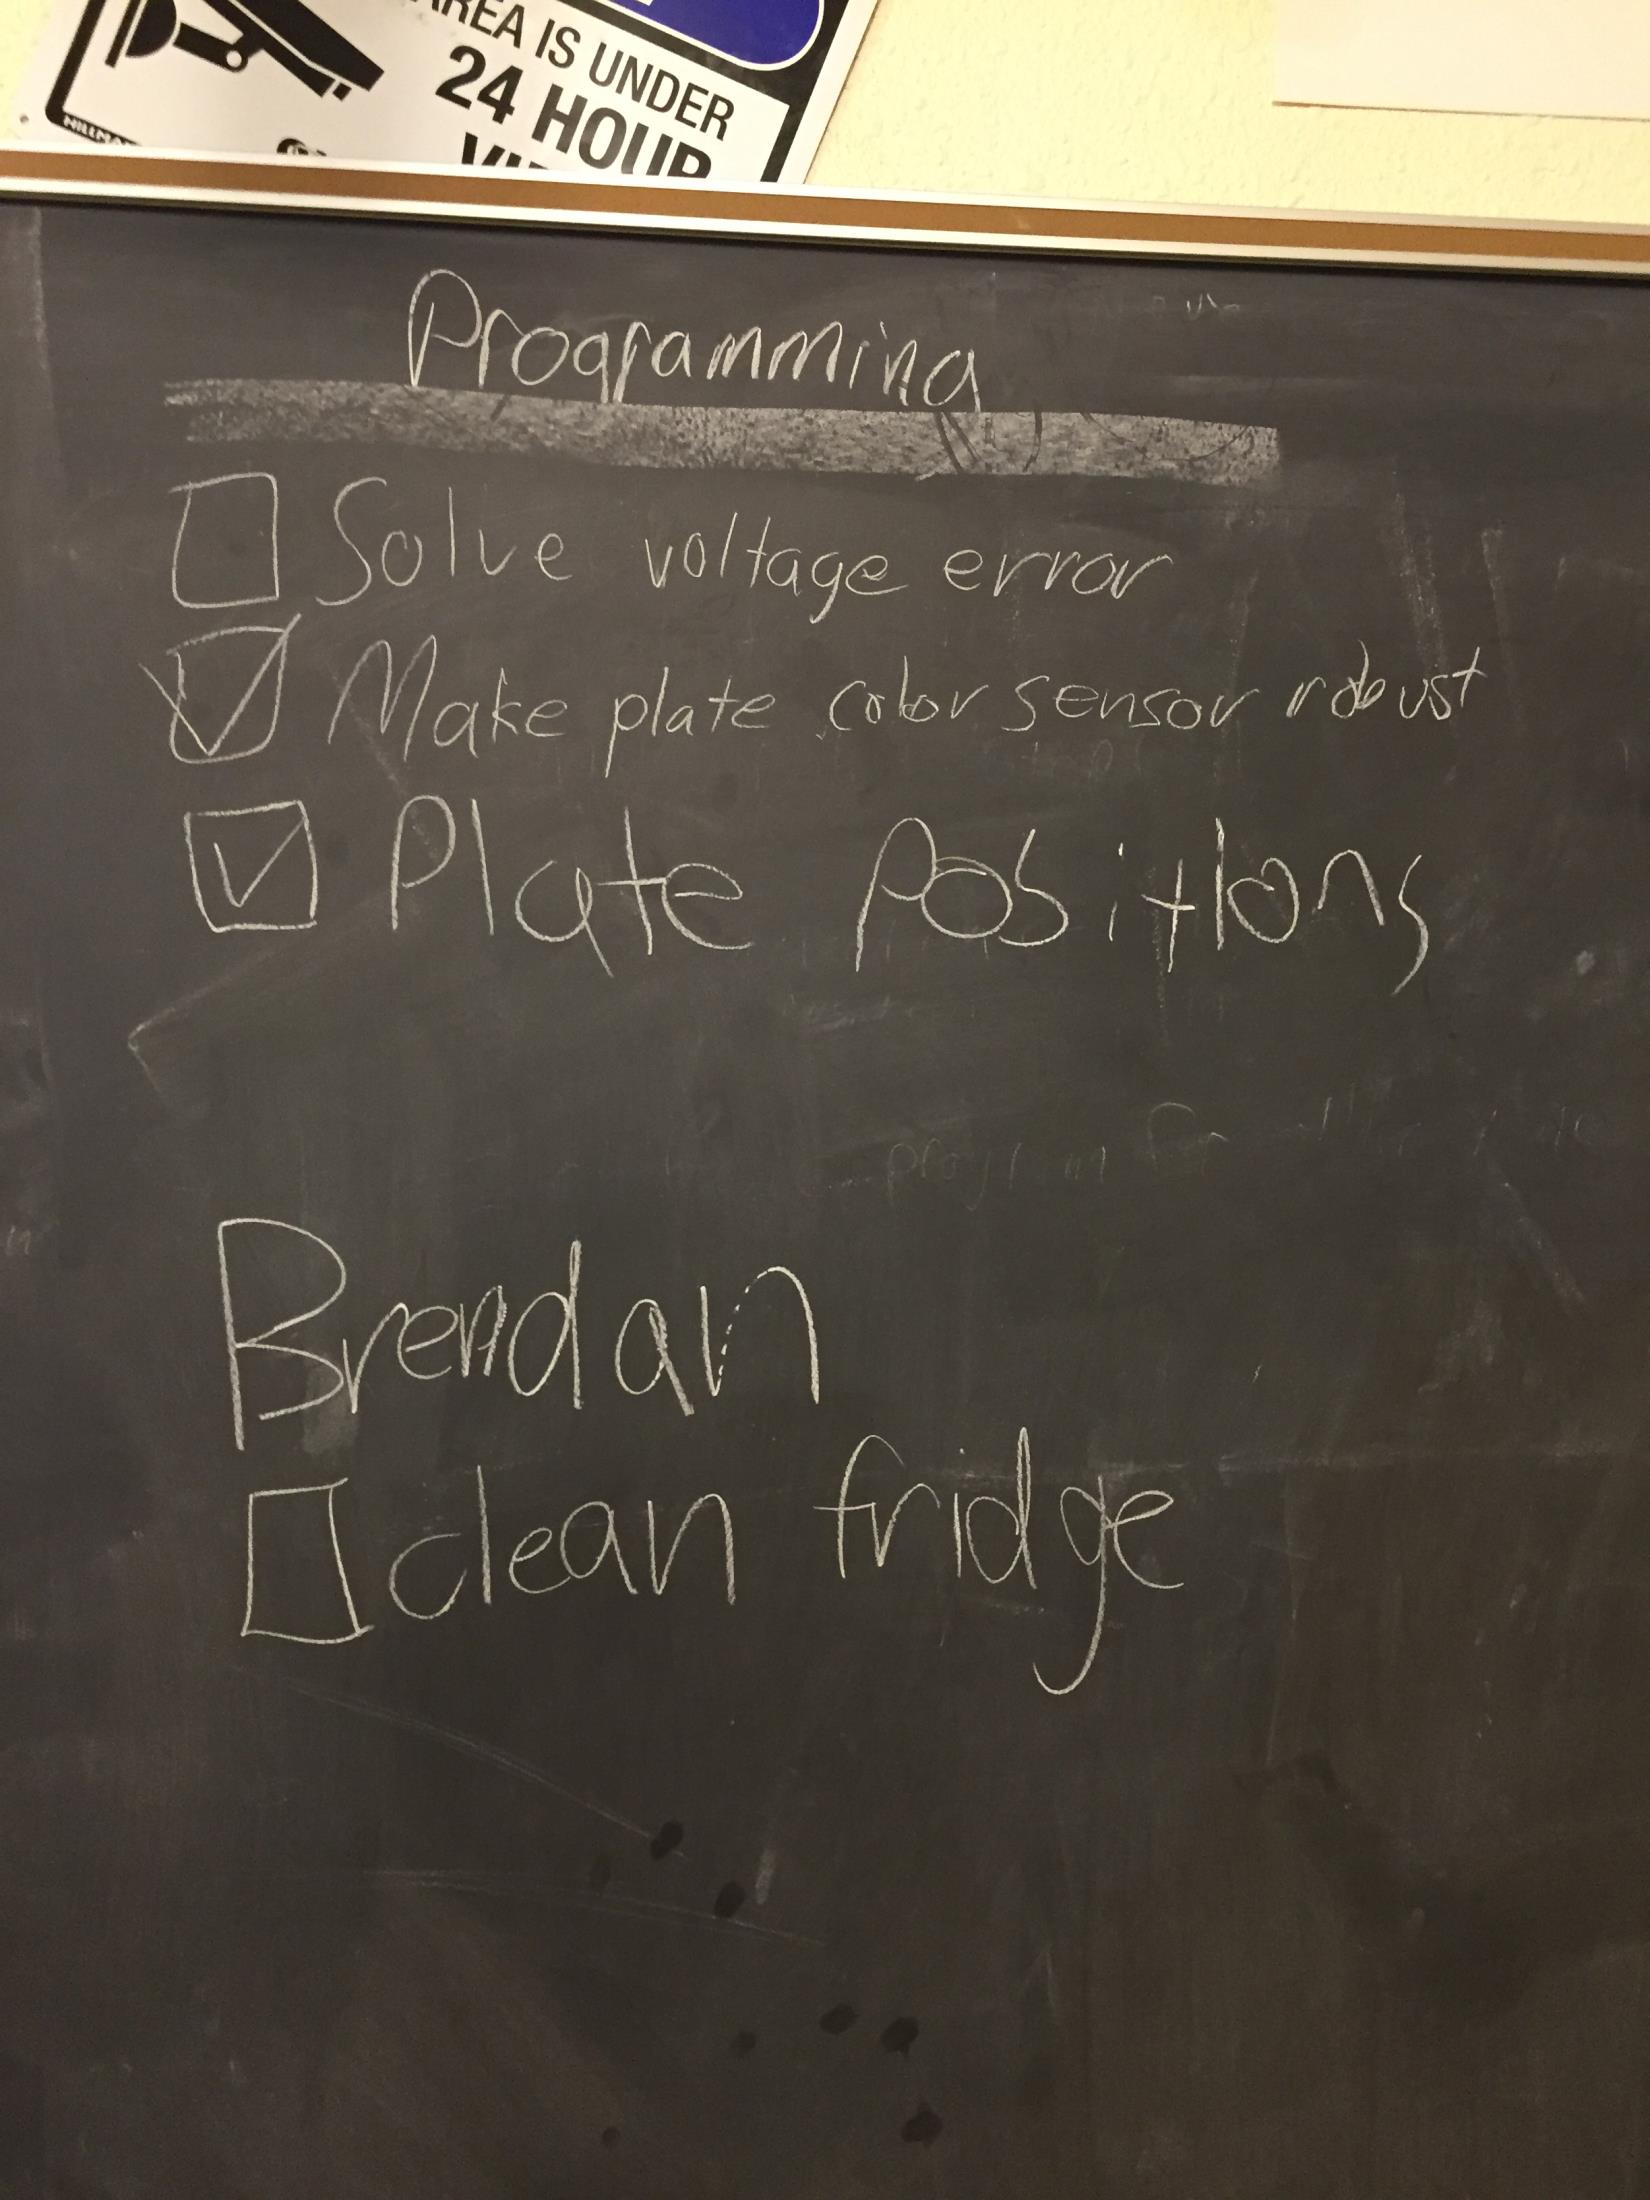 AREA IS UNDER
24 HOUR
HILLMA
Programming
Solve voltage error
Make plate color sensor robust
Plate Positions
program for
Brendan
clean fridge